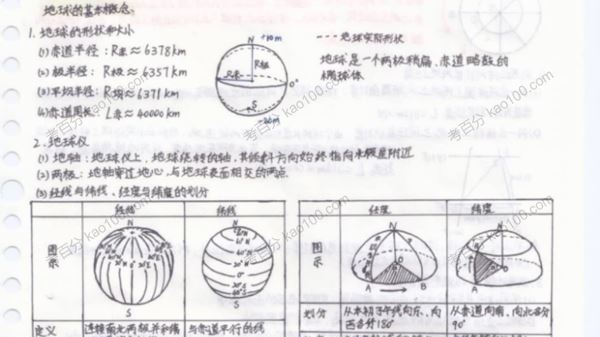 地球的基本概念:
1. 地球的形状和大小
(1)赤道半径: R赤≈6378km
(2)极半径: R极≈6357km
(3)平均半径: R均≈6371km
(4)赤道周长: L赤≈40000km
+10m
R极
R赤
0°
S
-30m
--- 地球实际形状
地球是一个两极稍扁,赤道略鼓的
椭球体
2. 地球仪
(1)地轴: 地球仪上,地球绕转的轴,其倾斜方向始终指向北极星附近
(2)两极: 地轴穿过地心,与地球表面相交的两点
(3)经线与纬线、经度与纬度的划分
经线 纬线
图示
N
S
N
S
定义 连接南北两极并和纬 与赤道平行的线
经度 纬度
图示
N
A B
N
A
划分 从本初子午线向东、向西各分180° 从赤道向南、向北各分90°
考百分 kao100.com